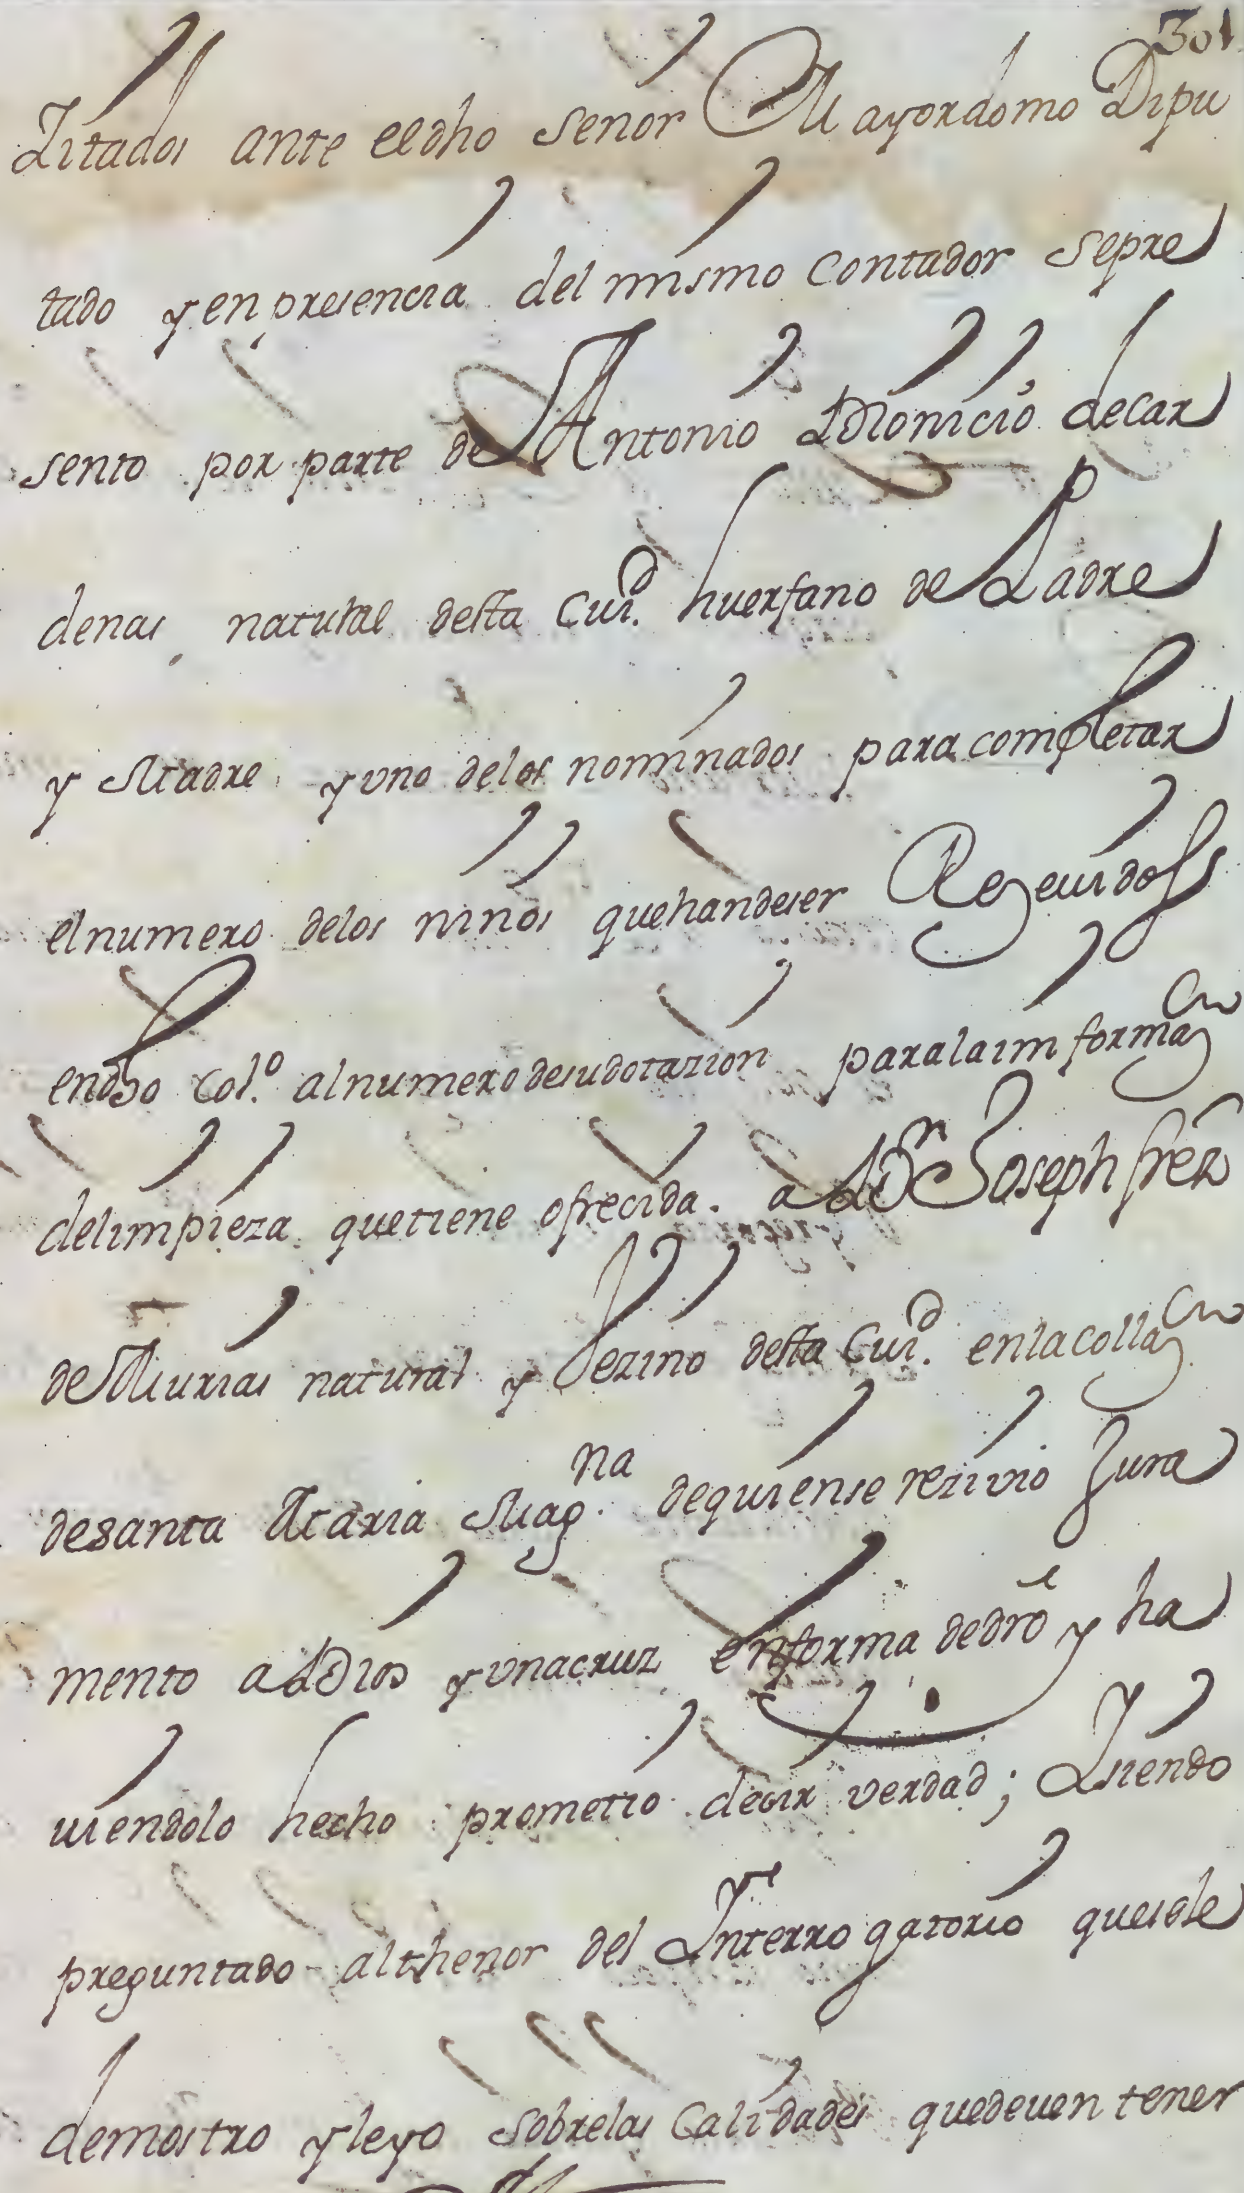 301
Zitados ante el dho señor Mayordomo Dipu
tado y en presencia del mismo Contador se pre
sento por parte de Antonio Dionicio de Car
denas natural desta Ciud. huerfano de Padre
y Madre y uno de los nominados para completar
el numero de los niños que han de ser Rezeuidos
en dho Col.º al numero de su dotazion para la imformaz.on
de limpieza que tiene ofrecida. a Dn Joseph frez
de Murias natural y Vezino desta Ciud. en la collaz.on
de santa Maria Mag.na de quien se rezivio Jura
mento a Dios y una cruz en forma de dro y ha
uiendolo hecho prometio decir verdad; Siendo
preguntado al thenor del Interrogatorio que se le
demostro y leyo sobre las Calidades que deuen tener